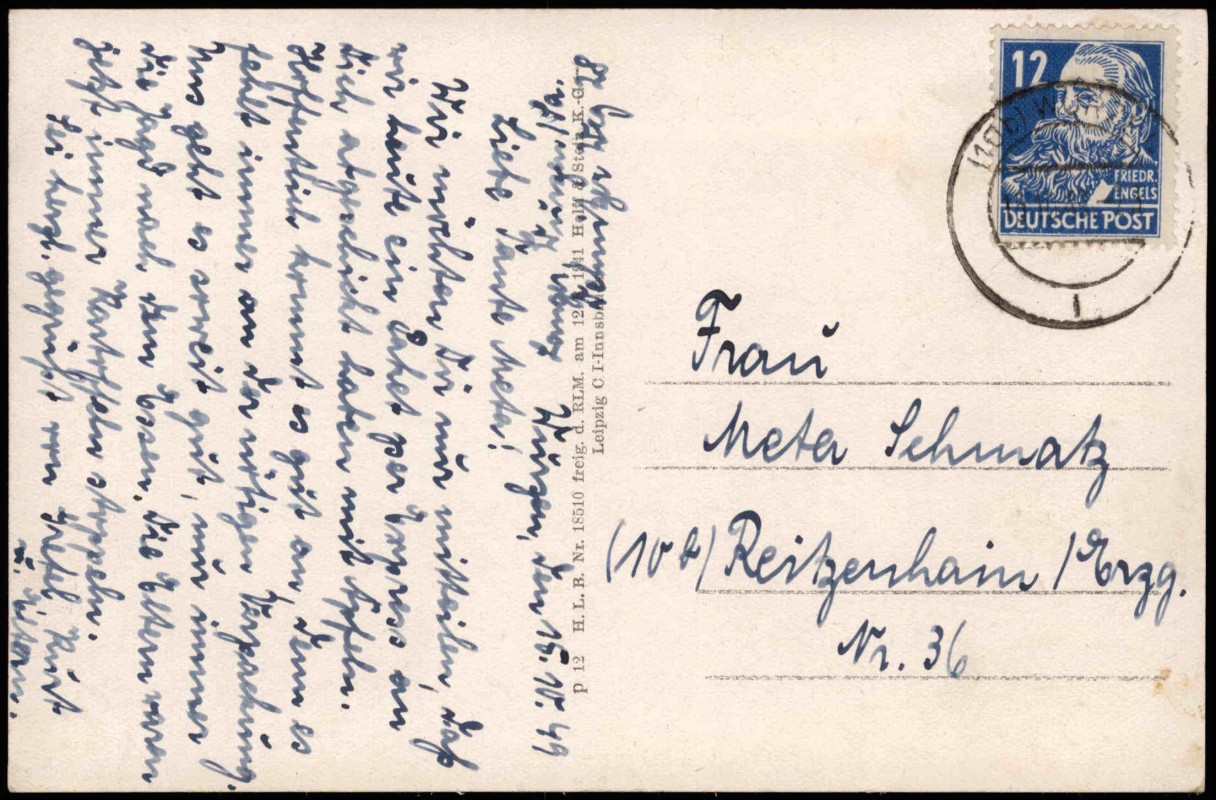 Wurzen, den 15.10.49
Liebe Tante Meta!
Wir möchten Dir nur mitteilen, daß
wir heute ein Paket per Express an
Dich abgeschickt haben mit Äpfeln.
Hoffentlich kommt es gut an, denn es
fehlt immer an der nötigen Verpackung.
Uns geht es soweit gut, nur immer
die Jagd nach dem Essen. Die Eltern waren
jetzt immer Kartoffeln stoppeln.
Sei herzl. gegrüßt von Gretel, Kurt
u. Eltern.
p 12 H. L. B. Nr. 18510 freig. d. RLM. am 12. 1941 Stein K.-G.
Leipzig C I-Innsbruck
12
FRIEDR.
ENGELS
DEUTSCHE POST
Frau
Meta Schmatz
(10b) Reitzenhain /Erzg.
Nr. 36